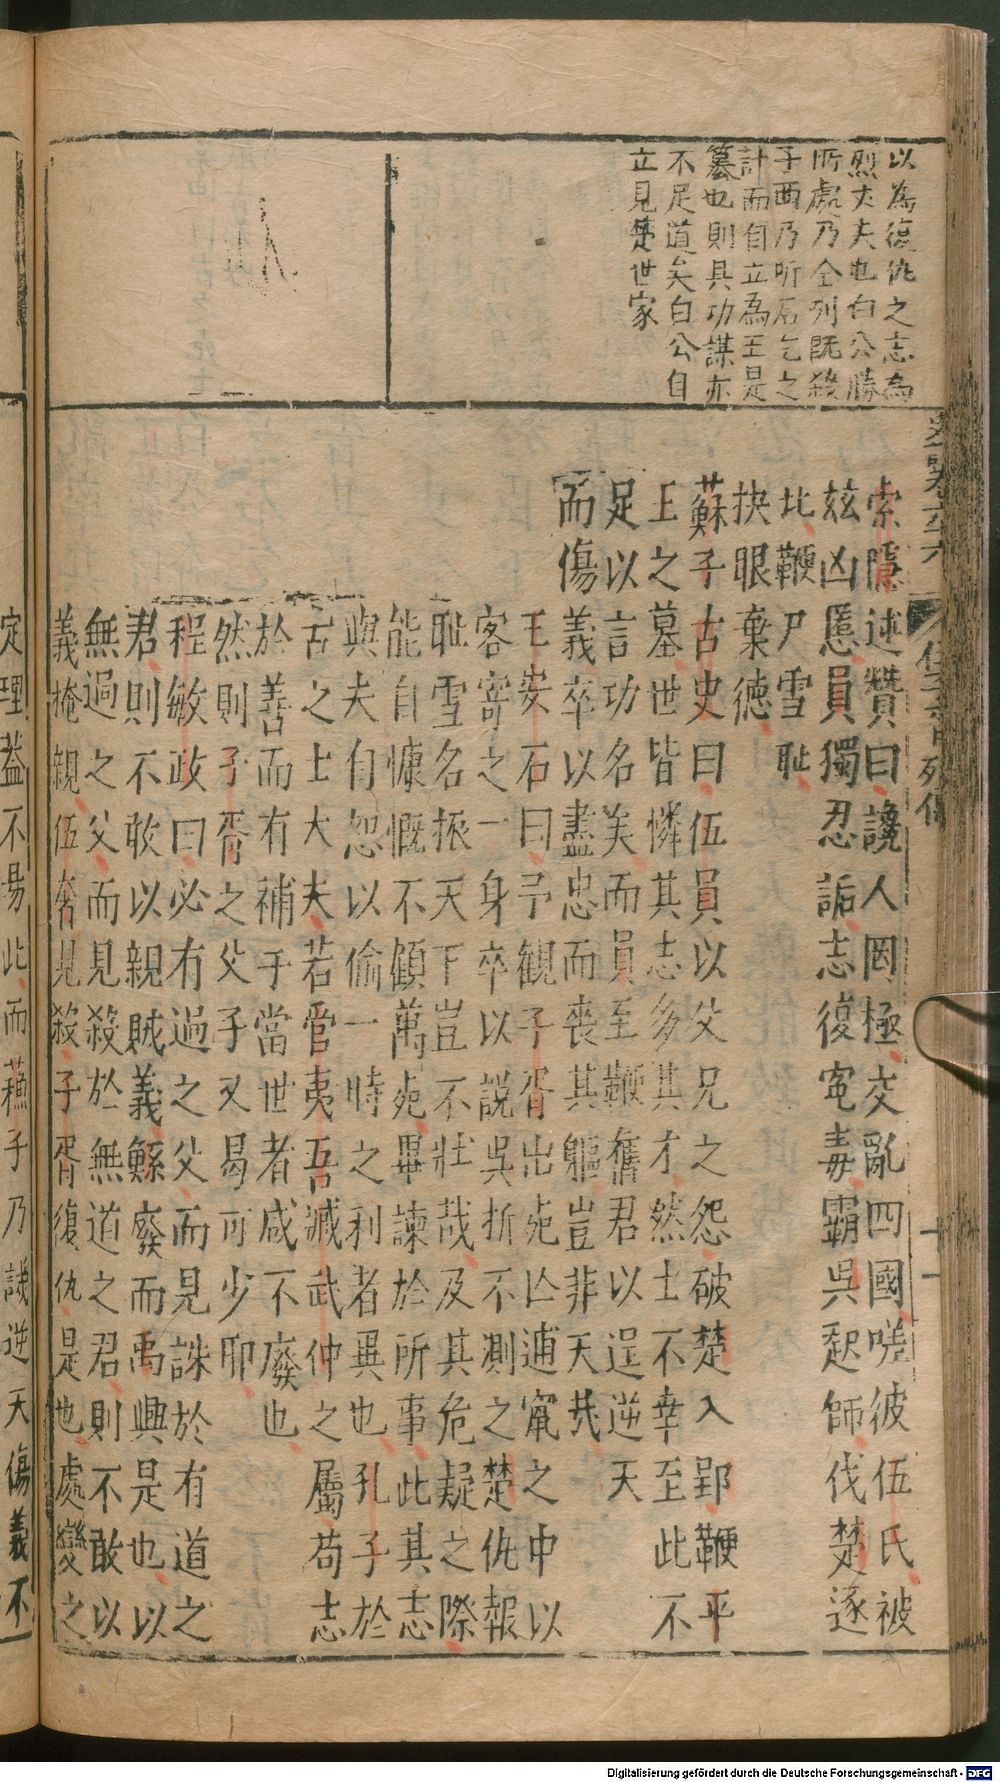 以為復仇之志為
烈大夫也白公勝
所處乃全列既殺
子西乃听石乞之
計而自立為王是
篡也則具功謀亦
不足道矣白公自
立見楚世家
列傳
索隱述贊曰讒人罔極交亂四國嗟彼伍氏被
玆凶慝員獨忍詬志復寃毒霸吳起師伐楚逐
北鞭尸雪耻
抉眼棄德
蘇子古史曰伍員以父兄之怨破楚入郢鞭平
王之墓世皆憐其志多其才然士不幸至此不
足以言功名矣而員至鞭舊君以逞逆天
而傷義卒以盡忠而喪其軀豈非天㢤
王安石曰予觀子胥出死亡逋竄之中以
客寄之一身卒以說吳折不測之楚仇報
耻雪名振天下豈不壯哉及其危疑之際
能自慷慨不顧萬死畢諫於所事此其志
與夫自恕以偷一時之利者異也孔子於
古之士大夫若管夷吾臧武仲之屬苟志
於善而有補乎當世者咸不廢也
然則子胥之父子又曷可少耶
程敏政曰必有過之父而見誅於有道之
君則不敢以親賊義鯀廢而禹興是也以
無過之父而見殺於無道之君則不敢以
義掩親伍奢見殺子胥復仇是也處變之
定理蓋不易此而蘓子乃譏逆天傷義不
Digitalisierung gefördert durch die Deutsche Forschungsgemeinschaft - DFG